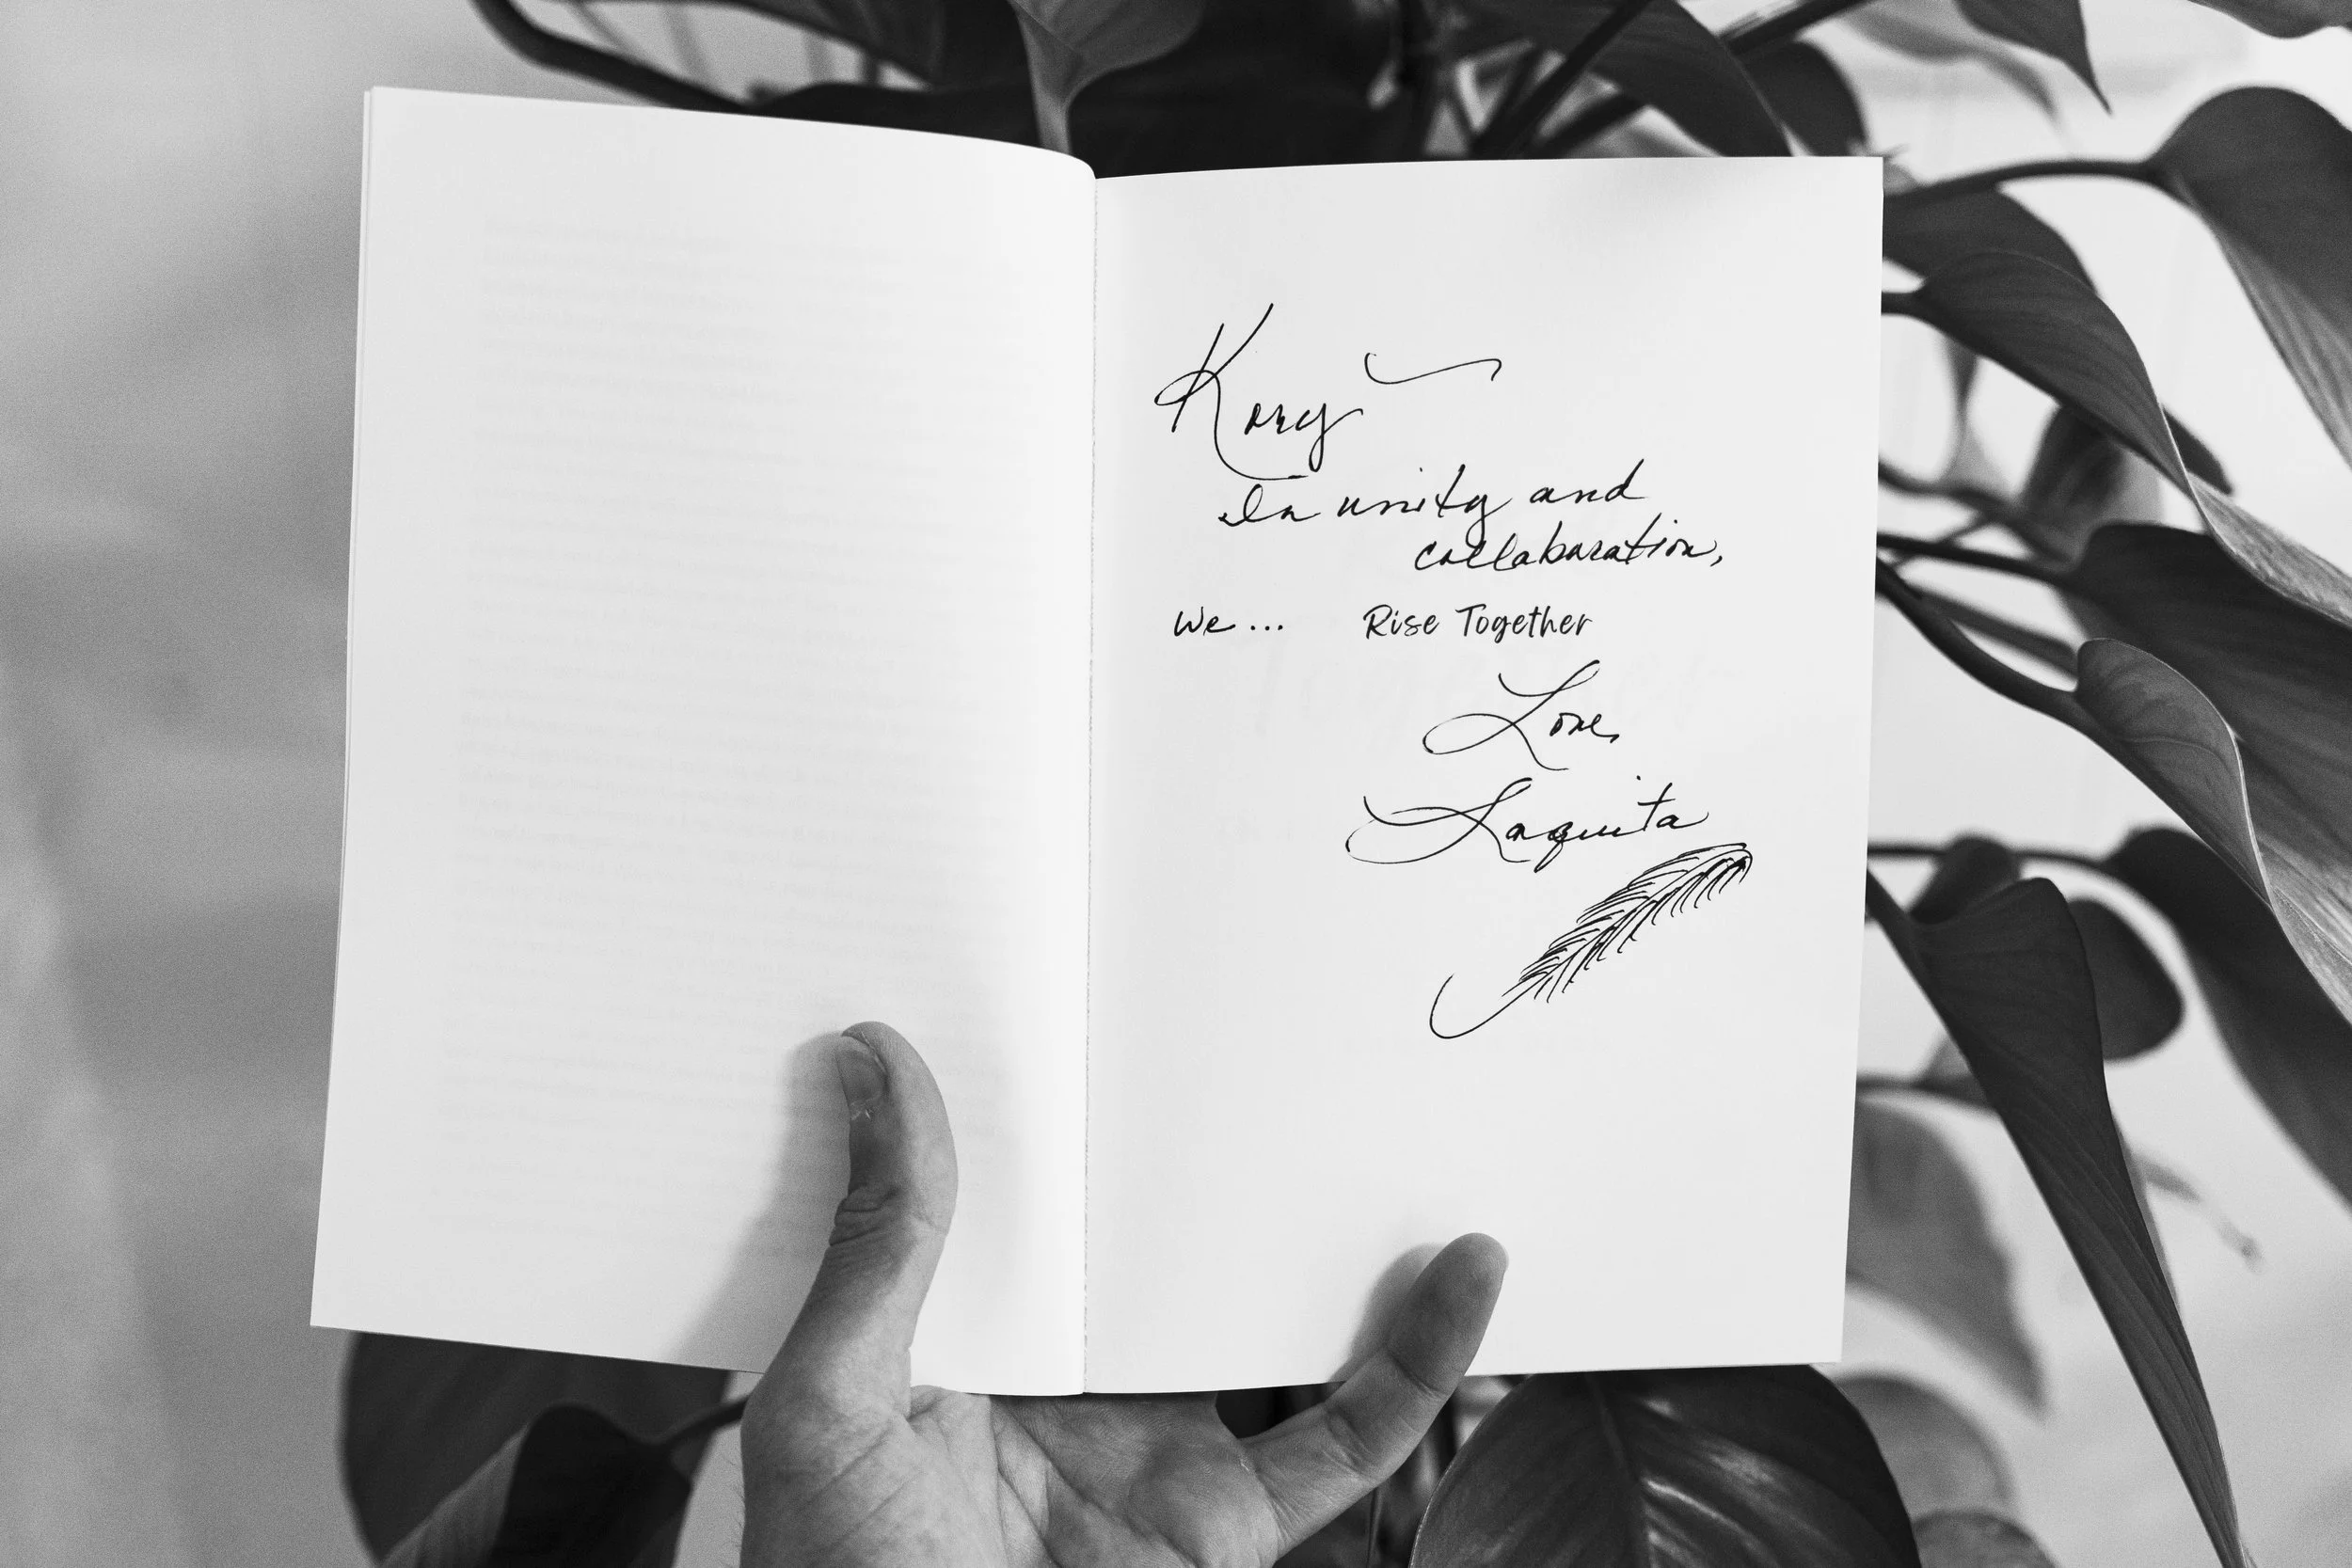 Kory ~
In unity and
collaboration,
We... Rise Together
Love,
Laquita